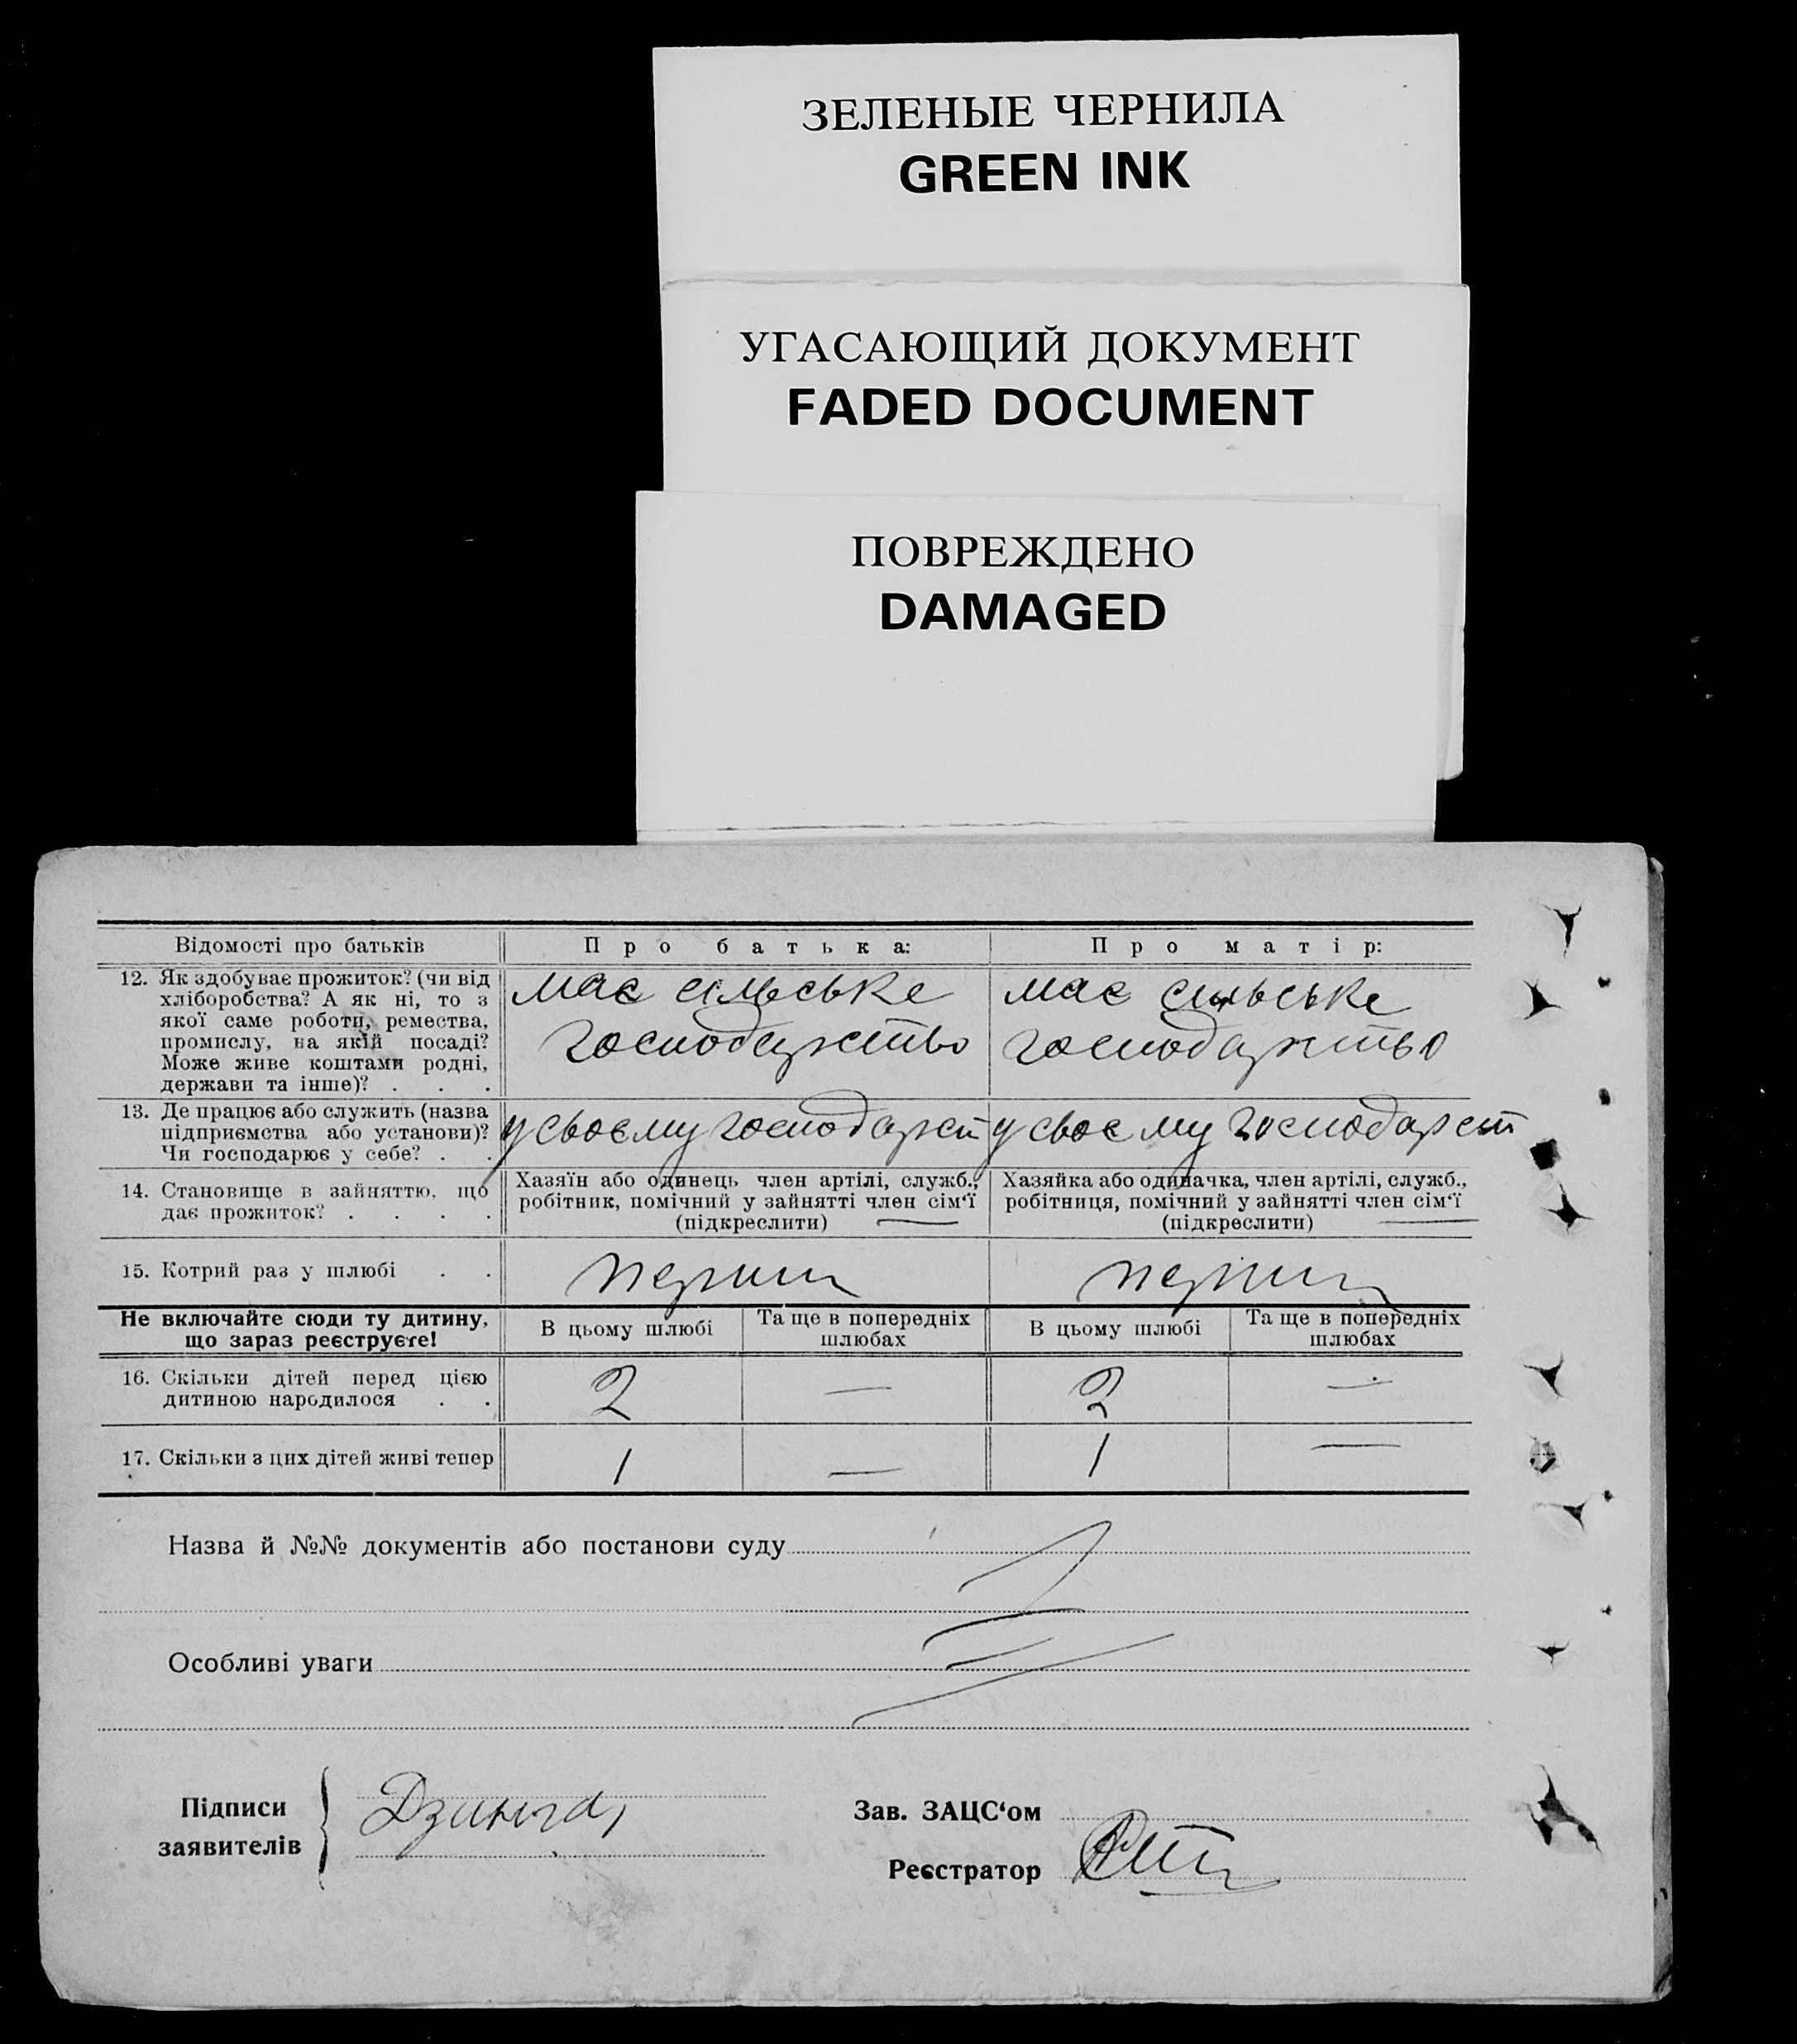 ЗЕЛЕНЫЕ ЧЕРНИЛА
GREEN INK
УГАСАЮЩИЙ ДОКУМЕНТ
FADED DOCUMENT
ПОВРЕЖДЕНО
DAMAGED
Відомості про батьків Про батька: Про матір:
12. Як здобуває прожиток? (чи від
хліборобства? А як ні, то з
якої саме роботи, ремества,
промислу, на якій посаді?
Може живе коштами родні,
держави та інше)? . . .
має сільське
господарство
має сільське
господарство
13. Де працює або служить (назва
підприємства або установи)?
Чи господарює у себе? . .
у своєму господарст
у своєму господарст
14. Становище в зайняттю, що
дає прожиток? . . . .
Хазяїн або одинець член артілі, служб.,
робітник, помічний у зайнятті член сім'ї
(підкреслити) —
Хазяйка або одиначка, член артілі, служб.,
робітниця, помічний у зайнятті член сім'ї
(підкреслити) —
15. Котрий раз у шлюбі . .
Не включайте сюди ту дитину,
що зараз реєструєте!
В цьому шлюбі
Та ще в попередніх
шлюбах
В цьому шлюбі
Та ще в попередніх
шлюбах
16. Скільки дітей перед цією
дитиною народилося . .
2 — 2 —
17. Скільки з цих дітей живі тепер 1 — 1 —
Назва й №№ документів або постанови суду
Особливі уваги
Підписи
заявителів
Зав. ЗАЦС'ом
Реєстратор